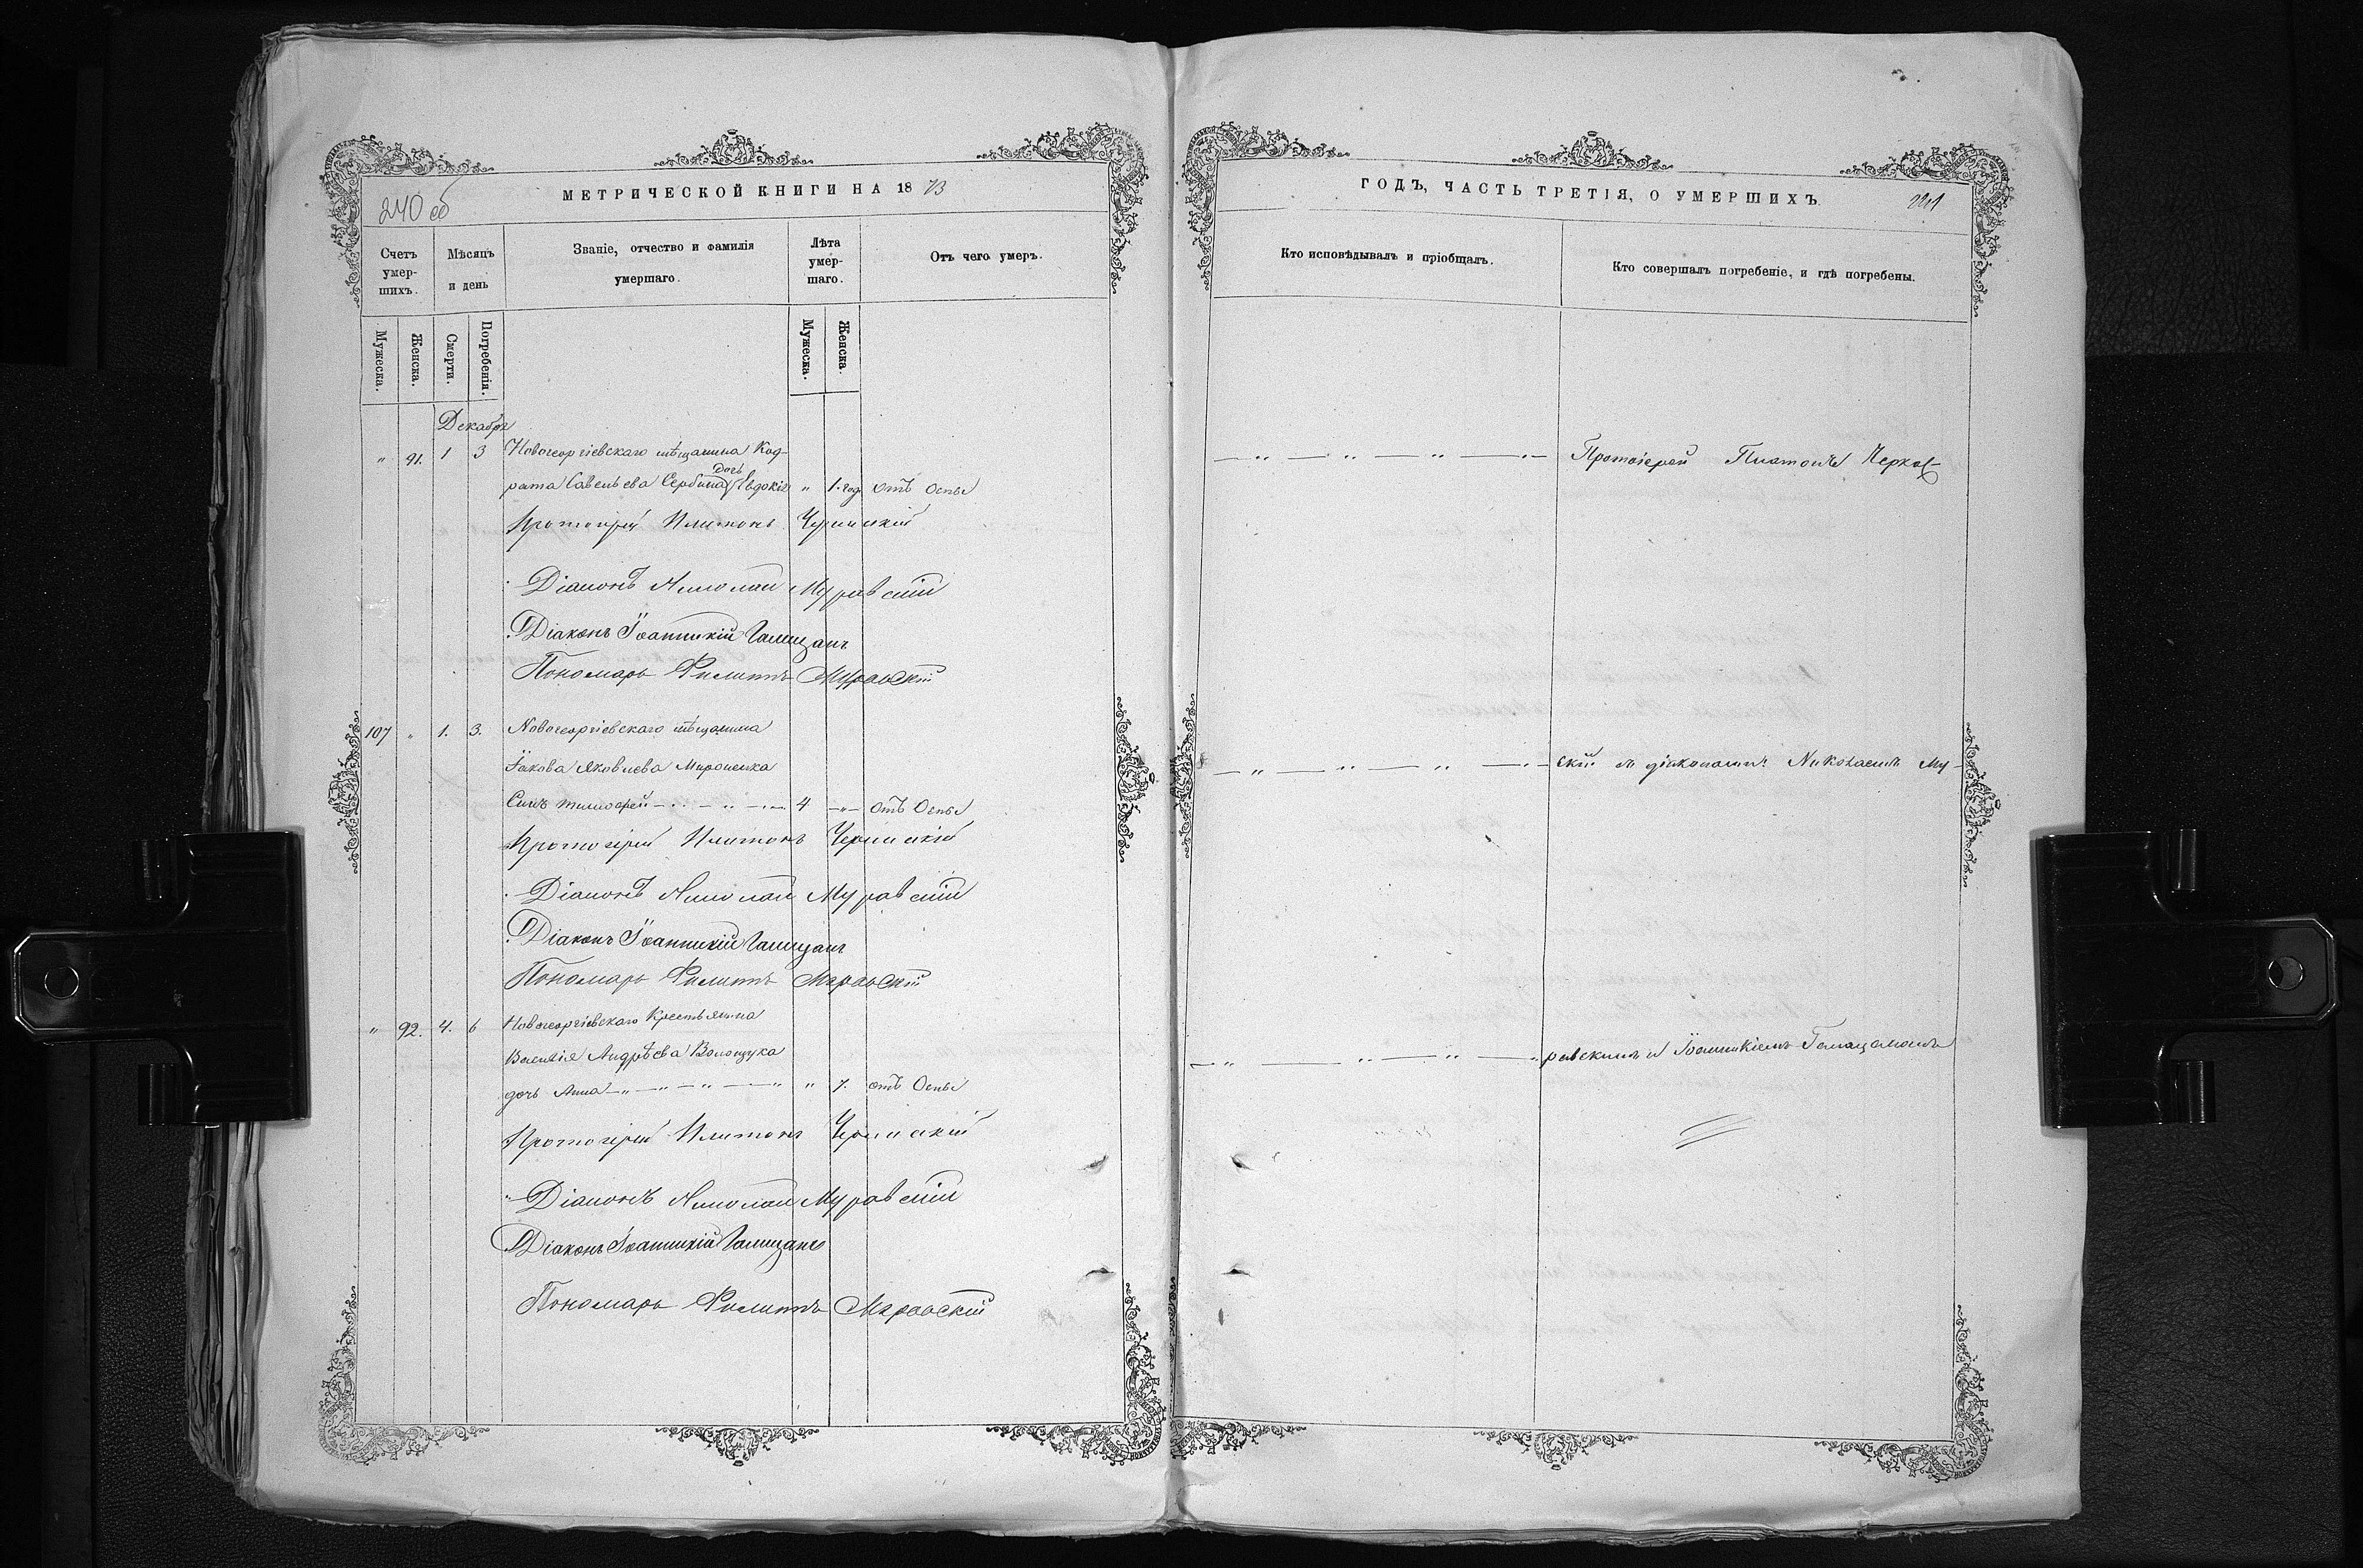 МЕТРИЧЕСКОЙ КНИГИ НА 1873
240 об
Счетъ умер-шихъ.
Мѣсяцъ и день
Званіе, отчество и фамилія умершаго.
Лѣта умер-шаго.
Отъ чего умеръ.
Мужеска.
Женска.
Смерти.
Погребенія.
Мужеска.
Женска.
Декабря
" 91. 1 3 Новогеоргіевскаго мѣщанина Код-
рата Савельева Сербина дочь Евдокія " 1. год отъ Оспы
Протоіерей Платонъ Черкаскій
Діаконъ Николай Муравскій
Діаконъ Іоанникій Галицанъ
Пономарь Филиппъ Муравскій
107 " 1. 3. Новогеоргіевскаго мѣщанина
Іакова Яковлева Мироненка
Сынъ Тимофей 4 " отъ Оспы
Протоіерей Платонъ Черкаскій
Діаконъ Николай Муравскій
Діаконъ Іоанникій Галицанъ
Пономарь Филиппъ Муравскій
" 92. 4. 6 Новогеоргіевскаго Крестьянина
Андрѣева Волощука
дочь Анна " 7. отъ Оспы
Протоіерей Платонъ Черкаскій
Діаконъ Николай Муравскій
Діаконъ Іоанникій Галицанъ
Пономарь Филиппъ Муравскій
ГОДЪ, ЧАСТЬ ТРЕТІЯ, О УМЕРШИХЪ
Кто исповѣдывалъ и пріобщалъ.
Кто совершалъ погребеніе, и гдѣ погребены.
Протоіерей Платонъ Черкас-
скій съ діаконами Николаемъ Му-
равскимъ и Іоанникіемъ Галицаномъ